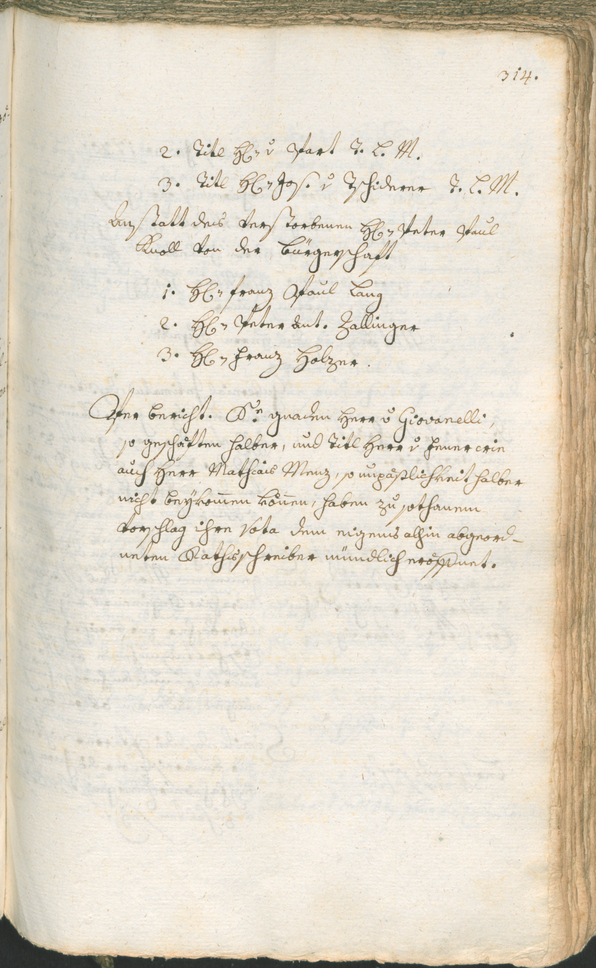 314.
2. Titl H: v Hart T. L. M.
3. Titl H: Jos. v Tschiderer T. L. M.
Anstatt des verstorbenen H: Peter Paul
Knoll von der burgerschafft
1. H: Franz Paul Lang
2. H: Peter Ant. Zallinger
3. H: Franz Holzer.
Per bericht. Sr. gnaden Herr v Giovanelli,
so geschäfften halber, und Titl Herr v
auch Herr Mathias Menz, so unpäßlichkeit halber
nicht beykomen können, haben zu sothanem
vorschlag ihre Vota dem eigens alhin abgeord-
neten Rathsschreiber mündlich eröffnet.